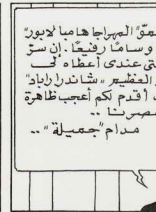 سموّ "المهراجا هامبا لابور"
وسامًا رفيعًا. إن سرّ
عندى أعطاه لى
العظيم "شاندرا راباد"
أقدم لكم أعجب ظاهرة
عصرنا ..
مدام "جميلة" ..